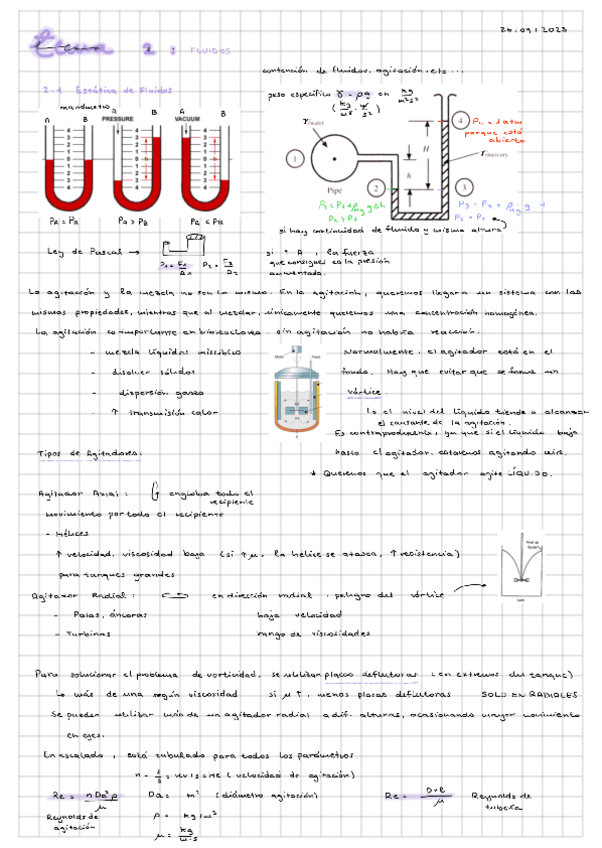 26.09.2023
Tema 2: FLUIDOS
contención de fluidos, agitación, etc...
2.1 Estática de Fluidos
peso específico γ = ρg en kg/m²s²
(kg/m³ · m/s²)
manómetro
A B
PRESSURE
A B
VACUUM
A B
PA = PB
PA > PB
PA < PB
γwater
1
Pipe
2
h
H
3
4
γmercury
P4 = 1 atm
porque está
abierto
P2 > P1
si hay continuidad de fluido y misma altura
Ley de Pascal →
P1 = F1/A1
P2 = F2/A2
si ↑ A, la fuerza
que consigues es la presión
aumentada.
La agitación y la mezcla no son lo mismo. En la agitación, queremos llegar a un sistema con las
mismas propiedades, mientras que al mezclar, únicamente queremos una concentración homogénea.
La agitación es importante en biorreactores sin agitación no habría reacción.
- mezcla líquidos miscibles
- disolver sólidos
- dispersión gases
↑ transmisión calor
Normalmente, el agitador está en el
fondo. Hay que evitar que se forme un
vórtice
↳ el nivel del líquido tiende a alcanzar
el causante de la agitación.
Es contraproducente, ya que si el líquido baja
hasta el agitador, estaremos agitando aire.
* Queremos que el agitador agite LÍQUIDO.
Tipos de Agitadores:
Agitador Axial: engloba todo el
recipiente
movimiento por todo el recipiente
- Hélices
↑ velocidad, viscosidad baja (si ↑μ, la hélice se atasca, ↑ resistencia)
para tanques grandes
Agitador Radial: en dirección radial. peligro del vórtice
- Palas, áncoras baja velocidad
- Turbinas rango de viscosidades
Para solucionar el problema de vorticidad, se utilizan placas deflectoras (en extremos del tanque)
↳ más de una según viscosidad si μ↑, menos placas deflectoras SOLO EN RADIALES
Se pueden utilizar más de un agitador radial a dif. alturas, ocasionando mayor movimiento
en ejes.
En escalado, está tabulado para todos los parámetros
(velocidad de agitación)
Re = nDa²ρ/μ
Da = m² (diámetro agitación)
Re = Dvρ/μ
Reynolds de
tubería
Reynolds de
agitación
ρ = kg/m³
μ = kg/m·s